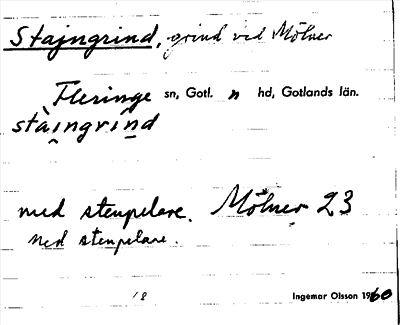 Stajngrind, grind ved Mölner
Fleringe sn, Gotl. n hd, Gotlands län.
stàingrínd
med stenpelare. Mölner 23
med stenpelare.
18
Ingemar Olsson 1960